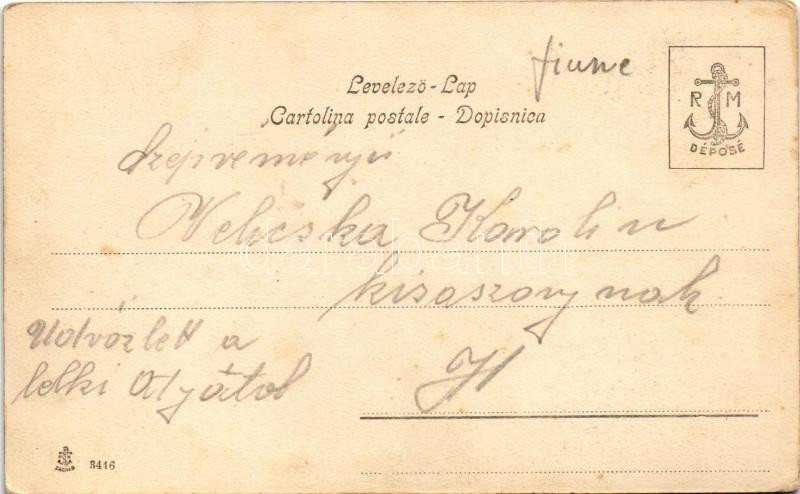 fiume
Levelező-Lap
Cartolina postale - Dopisnica
R M
DÉPOSÉ
Szépreményü
Veliczka Karolin
darabanth
kisaszonynak
H
Üdvözlett a
lelki Atyától
ZAGREB
3446